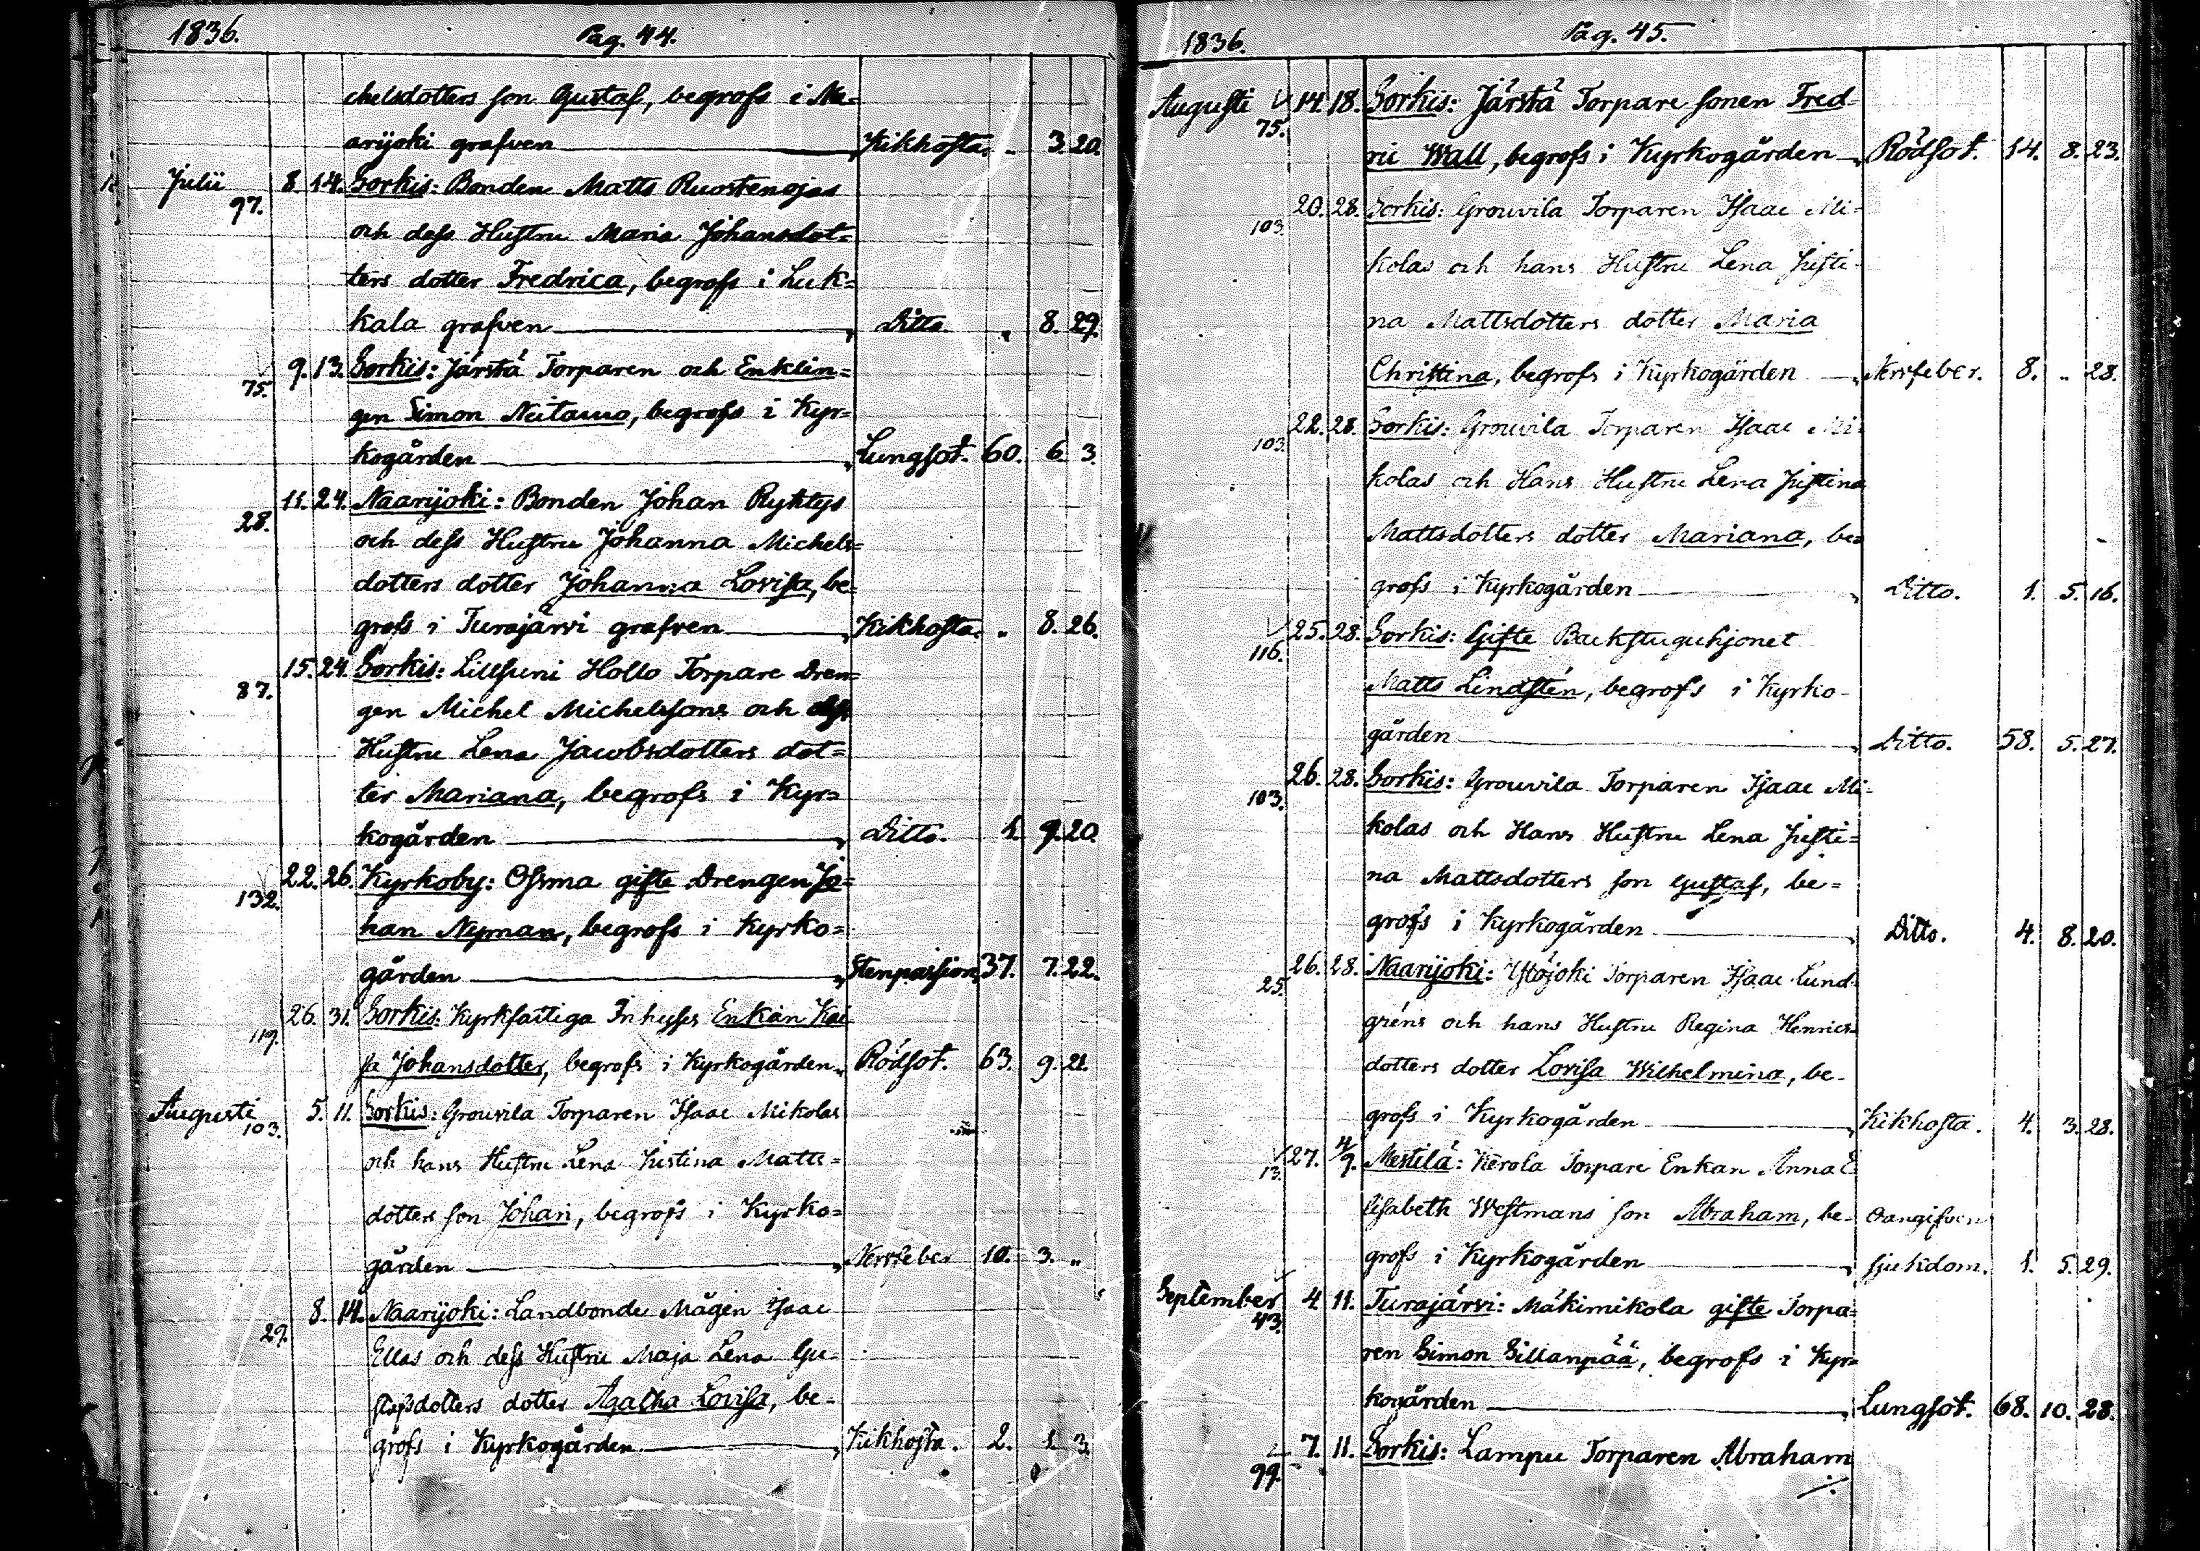 1836. Pag. 44.
chelsdotters son Gustaf, begrofs i Na=
arijoki grafven Kikhosta. „ 3. 20.
Julii 97. 8. 14. Sorkis: Bonden Matts Ruostenojas
och dess Hustru Maria Johansdot=
ters dotter Fredrica, begrofs i Luk=
kala grafven Ditto „ 8. 29.
75. 9. 13. Sorkis: Järstä Torparen och Enklin=
gen Simon Neitamo, begrofs i Kyr=
kogården Lungsot. 60. 6. 3.
28. 11. 24. Naarijoki: Bonden Johan Ryktys
och dess Hustru Johanna Michels=
dotters dotter Johanna Lovisa, be=
grofs i Turajärvi grafven Kikhosta. „ 8. 26.
87. 15. 24. Sorkis: Lillsuni Hollo Torpare Dren=
gen Michel Michelssons och dess
Hustru Lena Jacobsdotters dot=
ter Mariana, begrofs i Kyr=
kogården Ditto. 1. 9. 20.
132. 22. 26. Kyrkoby: Ossma gifte Drengen Jo=
han Nyman, begrofs i Kyrko=
gården Stenpassion 37. 7. 22.
119. 26. 31. Sorkis: Kyrkfattiga Inhyses Enkan Kai
sa Johansdotter, begrofs i Kyrkogården Rödsot. 63. 9. 21.
Augusti 103. 5. 11. Sorkis: Grouvila Torparen Isaac Mikolas
och hans Hustru Lena Justina Matts=
dotters son Johan, begrofs i Kyrko=
gården Nervfeber 10. 3. „
29. 8. 14. Naarijoki: Landbonde Mågen Isaac
Ellas och dess Hustru Maja Lena Gu=
stafsdotters dotter Agatha Lovisa, be=
grofs i Kyrkogården Kikhosta. 2. 1. 3.
1836. Pag. 45.
Augusti 75. 14. 18. Sorkis: Järstä Torpare sonen Fred=
ric Wall, begrofs i Kyrkogården Rödsot. 14. 8. 23.
103. 20. 28. Sorkis: Grouvila Torparen Isaac Mi=
kolas och hans Hustru Lena Justi=
na Mattsdotters dotter Maria
Christina, begrofs i Kyrkogården Nervfeber. 8. „ 28.
103. 22. 28. Sorkis: Grouvila Torparen Isaac Mi=
kolas och Hans Hustru Lena Justina
Mattsdotters dotter Mariana, be=
grofs i Kyrkogården Ditto. 1. 5. 16.
116. 25. 28. Sorkis: Gifte Backstuguhjonet
Matts Lindstén, begrofs i Kyrko=
gården Ditto. 58. 5. 27.
103. 26. 28. Sorkis: Grouvila Torparen Isaac Mi=
kolas och Hans Hustru Lena Justi=
na Mattsdotters son Gustaf, be=
grofs i Kyrkogården Ditto. 4. 8. 20.
25. 26. 28. Naarijoki: Ylöjoki Torparen Isaac Lund
gréns och hans Hustru Regina Henrics=
dotters dotter Lovisa Wilhelmina, be=
grofs i Kyrkogården Kikhosta. 4. 3. 28.
13. 27. 4/9. Mestilä: Kerola Torpare Enkan Anna E
lisabeth Westmans son Abraham, be= Oangifven
grofs i Kyrkogården sjukdom. 1. 5. 29.
September 43. 4. 11. Turajärvi: Mäkimikola gifte Torpa=
ren Simon Sillanpää, begrofs i Kyr=
kogården Lungsot. 68. 10. 28.
99. 7. 11. Sorkis: Lampu Torparen Abraham